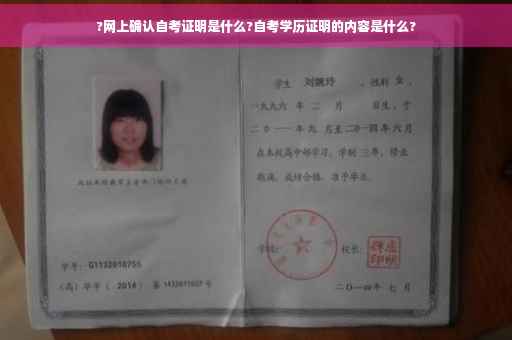 ?网上确认自考证明是什么?自考学历证明的内容是什么?
学生 刘婉玲 ，性别 女 ，
一九九六 年 二 月 日生，于
二〇一一年九 月至二〇一四年六月
在本校高中部学习，学制 三年，修业
期满，成绩合格，准予毕业。
学号： G1132010755
校长：
（高）毕字（ 2014 ）第 1432011027 号
二〇一四年 七 月